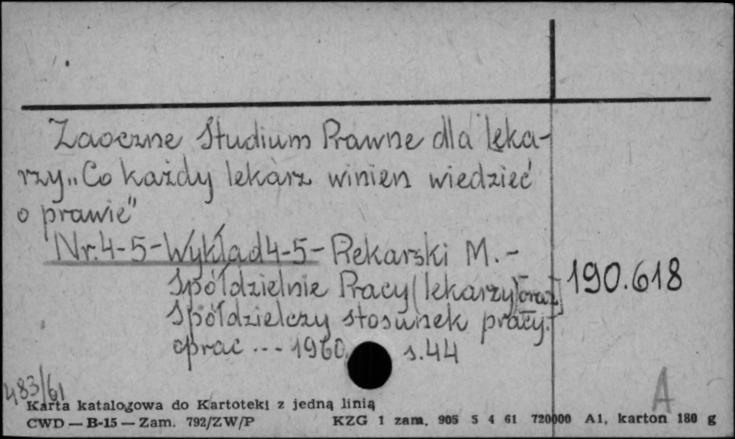 Zaoczne Studium Prawne dla leka-
rzy „Co każdy lekarz winien wiedzieć
o prawie"
Nr. 4-5 - Wykład 4-5 - Rekarski M. -
Spółdzielnie Pracy (lekarzy) oraz
190.618
Spółdzielczy stosunek pracy.
oprac --- 1960. s. 44
483/61
A
Karta katalogowa do Kartoteki z jedną linią
CWD — B-15 — Zam. 792/ZW/P KZG 1 zam. 905 5 4 61 720000 A1, karton 180 g